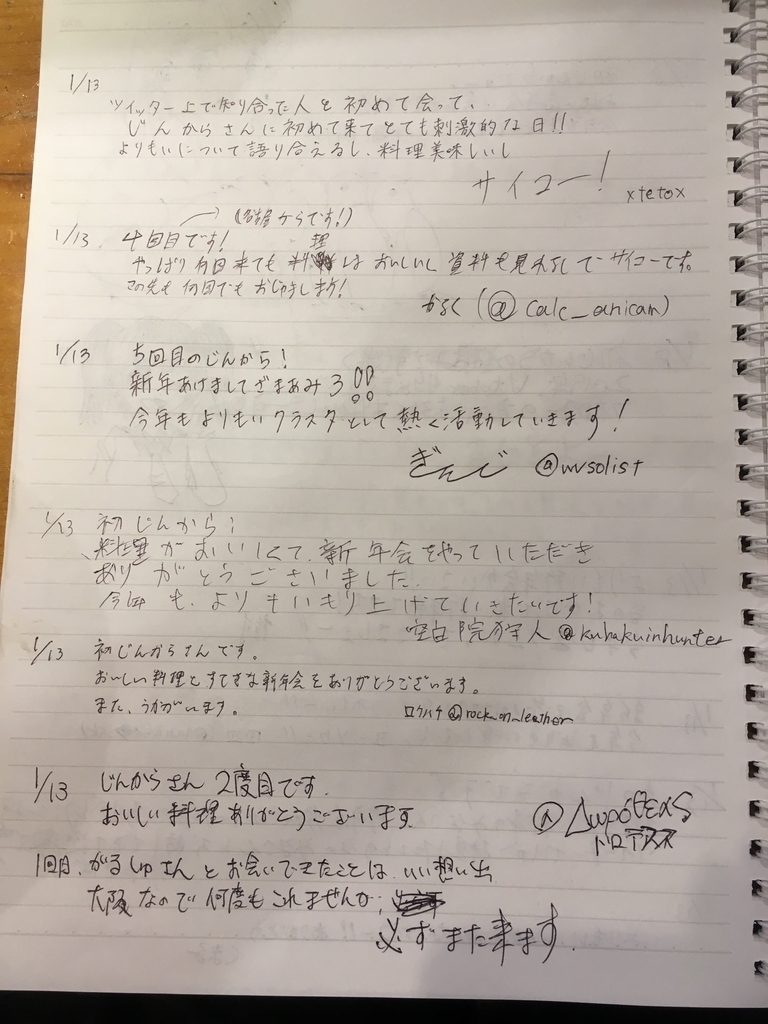 1/13
ツイッター上で知り合った人と初めて会って、
じんからさんに初めて来てとても刺激的な日!!
よりもいについて語り合えるし、料理美味しいし
サイコー! xtetox
(名古屋からです!)
1/13 4回目です!
やっぱり何回来ても料理はおいしいし資料も見れるしでサイコーです。
この先も何回でもおじゃまします!
かるく (@calc_anican)
1/13 5回目のじんから!
新年あけましてざまあみろ!!
今年もよりもいクラスタとして熱く活動していきます!
ぎんじ @wvsolist
1/13 初じんから!
料理がおいしくて、新年会をやっていただき
ありがとうございました。
今年も、よりもいもり上げていきたいです!
空白院狩人 @kuhakuinhunter
1/13 初じんからさんです。
おいしい料理とすてきな新年会をありがとうございます。
また、うかがいます。 ロクハチ @rock_on_leather
1/13 じんからさん2度目です。
おいしい料理ありがとうございます。
@
1回目、がるしゅさんとお会いできたことは、いい想い出
大阪なので何度もこれませんが、
必ずまた来ます。